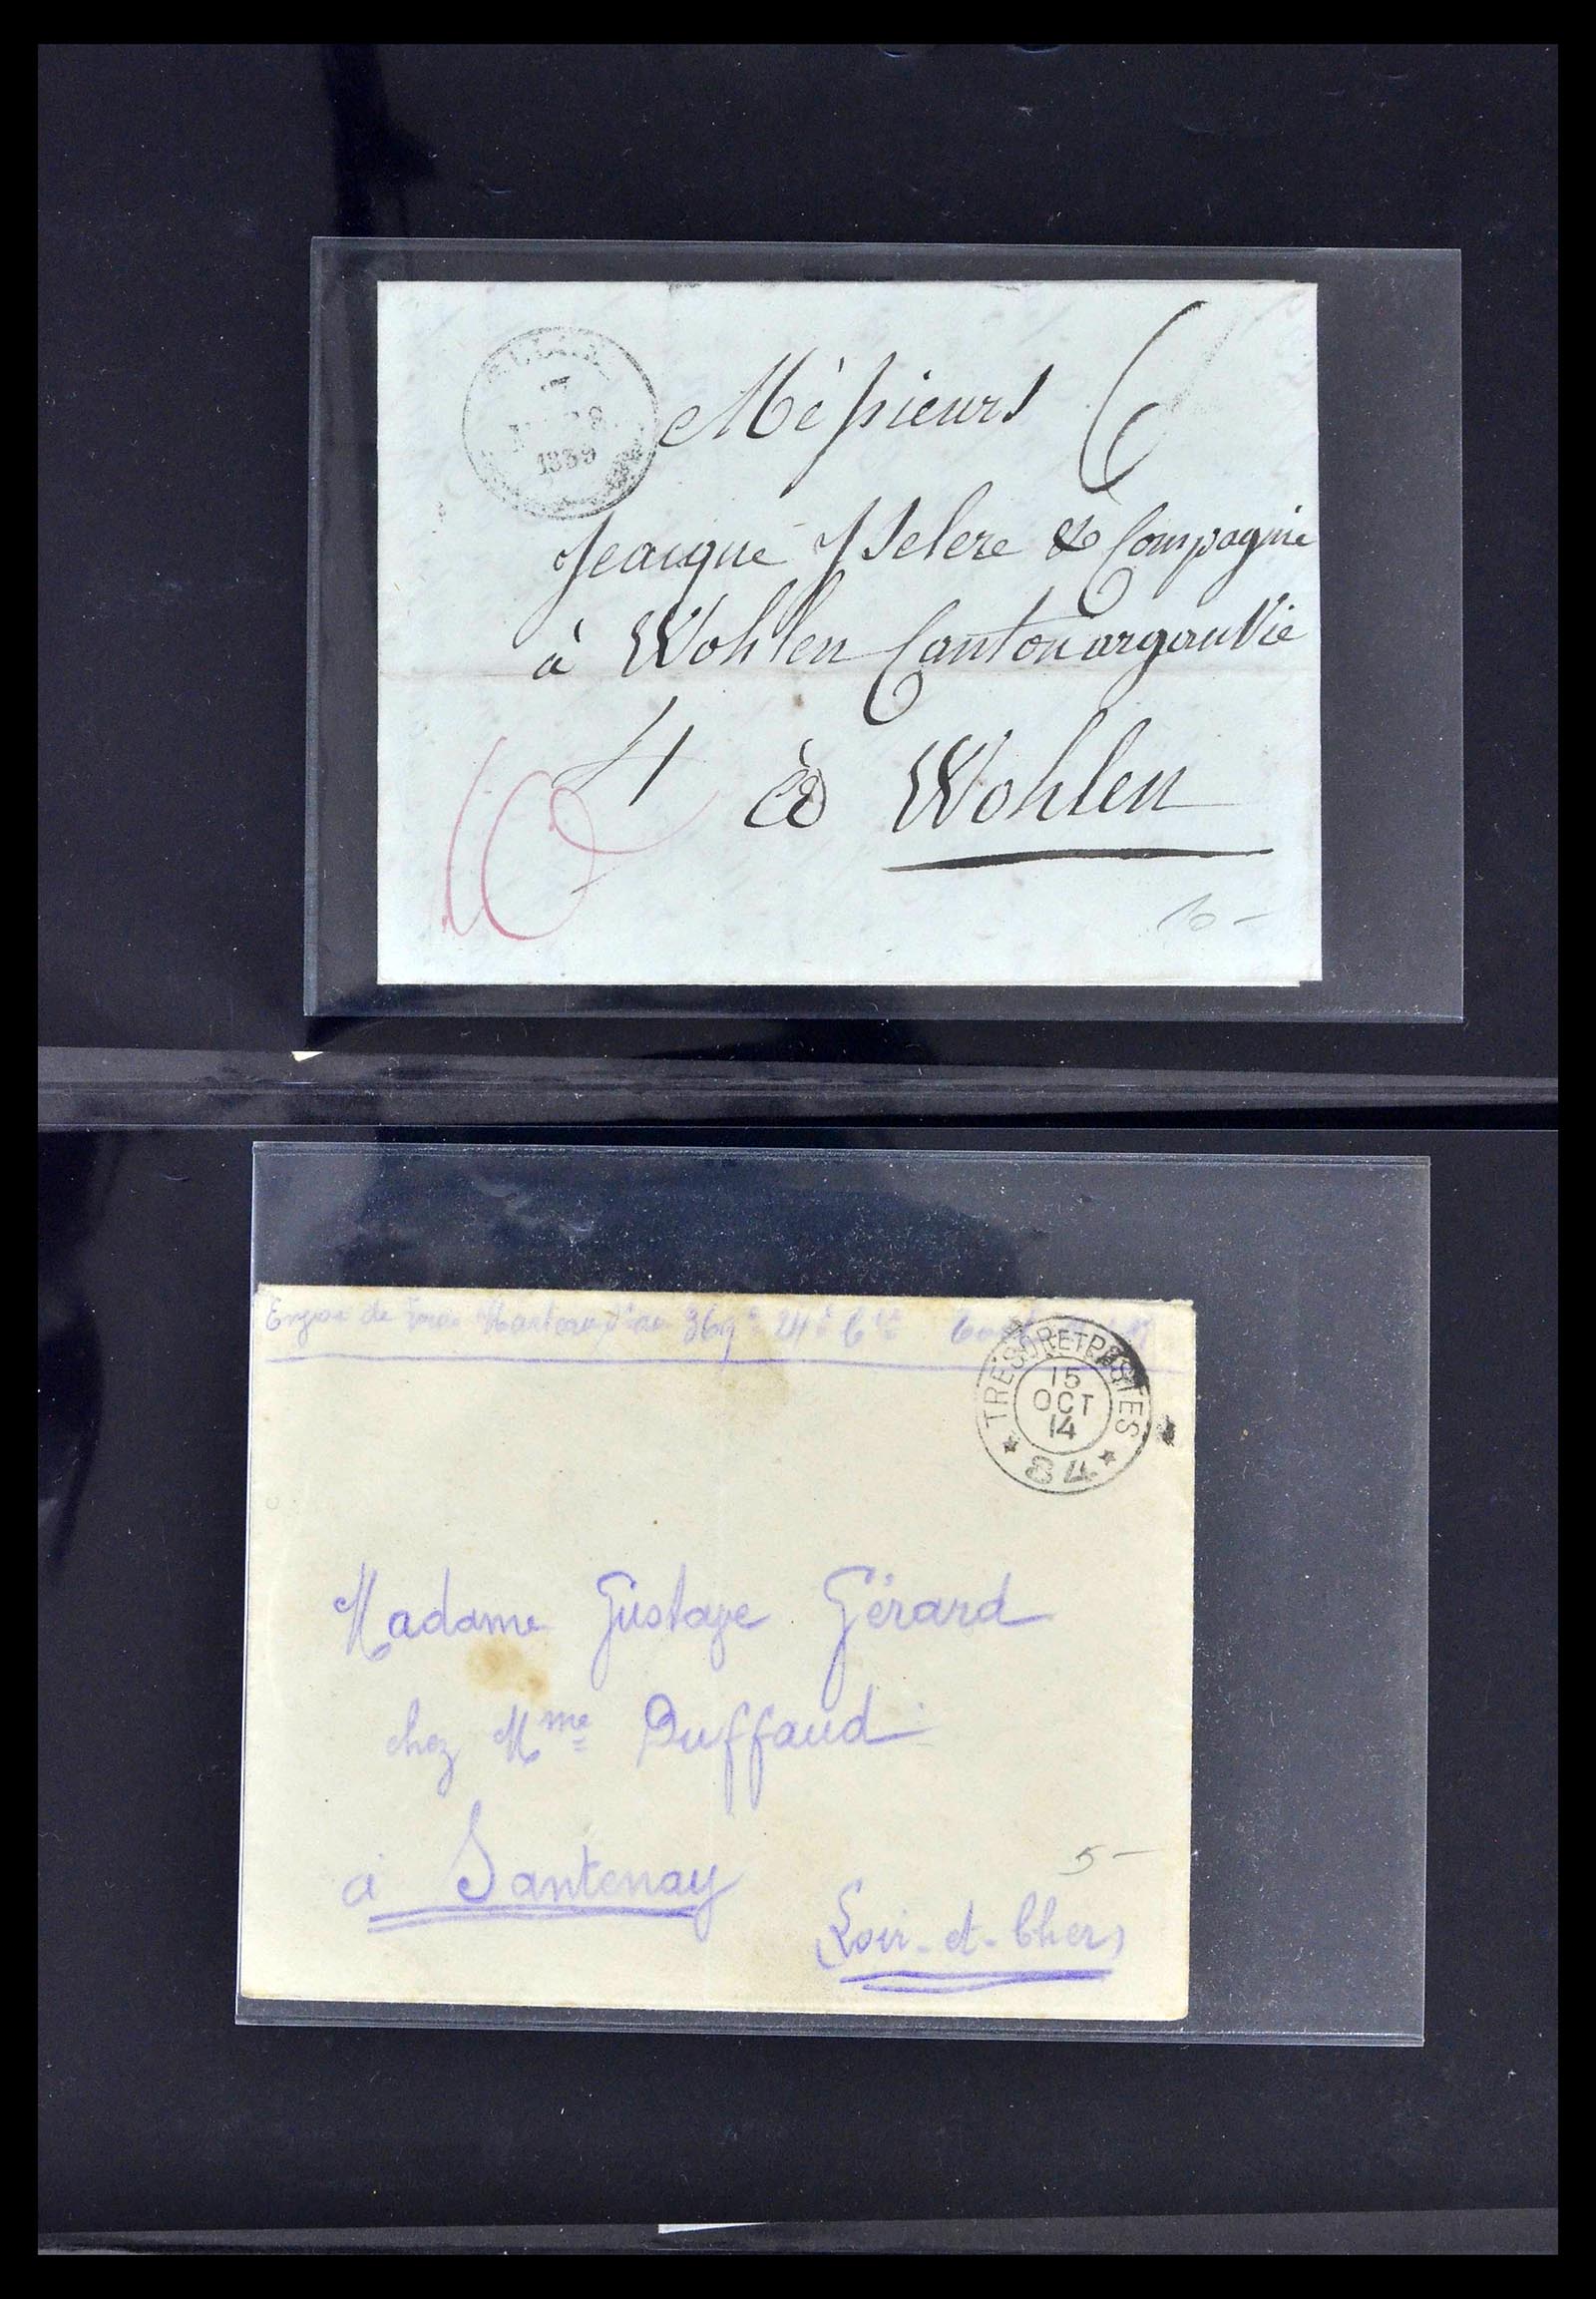 1839
Mèssieurs 6
Jeacque Iselere & Compagnie
à Wohlen Canton argauvie
4 à Wohlen
10
10-
Envoi de 369e 24e Cie
TRESOR ET POSTES
15
OCT
14
* 84 *
Madame Gustave Gérard
chez Mme Duffaud
5-
à Santenay
Loir-et-Cher